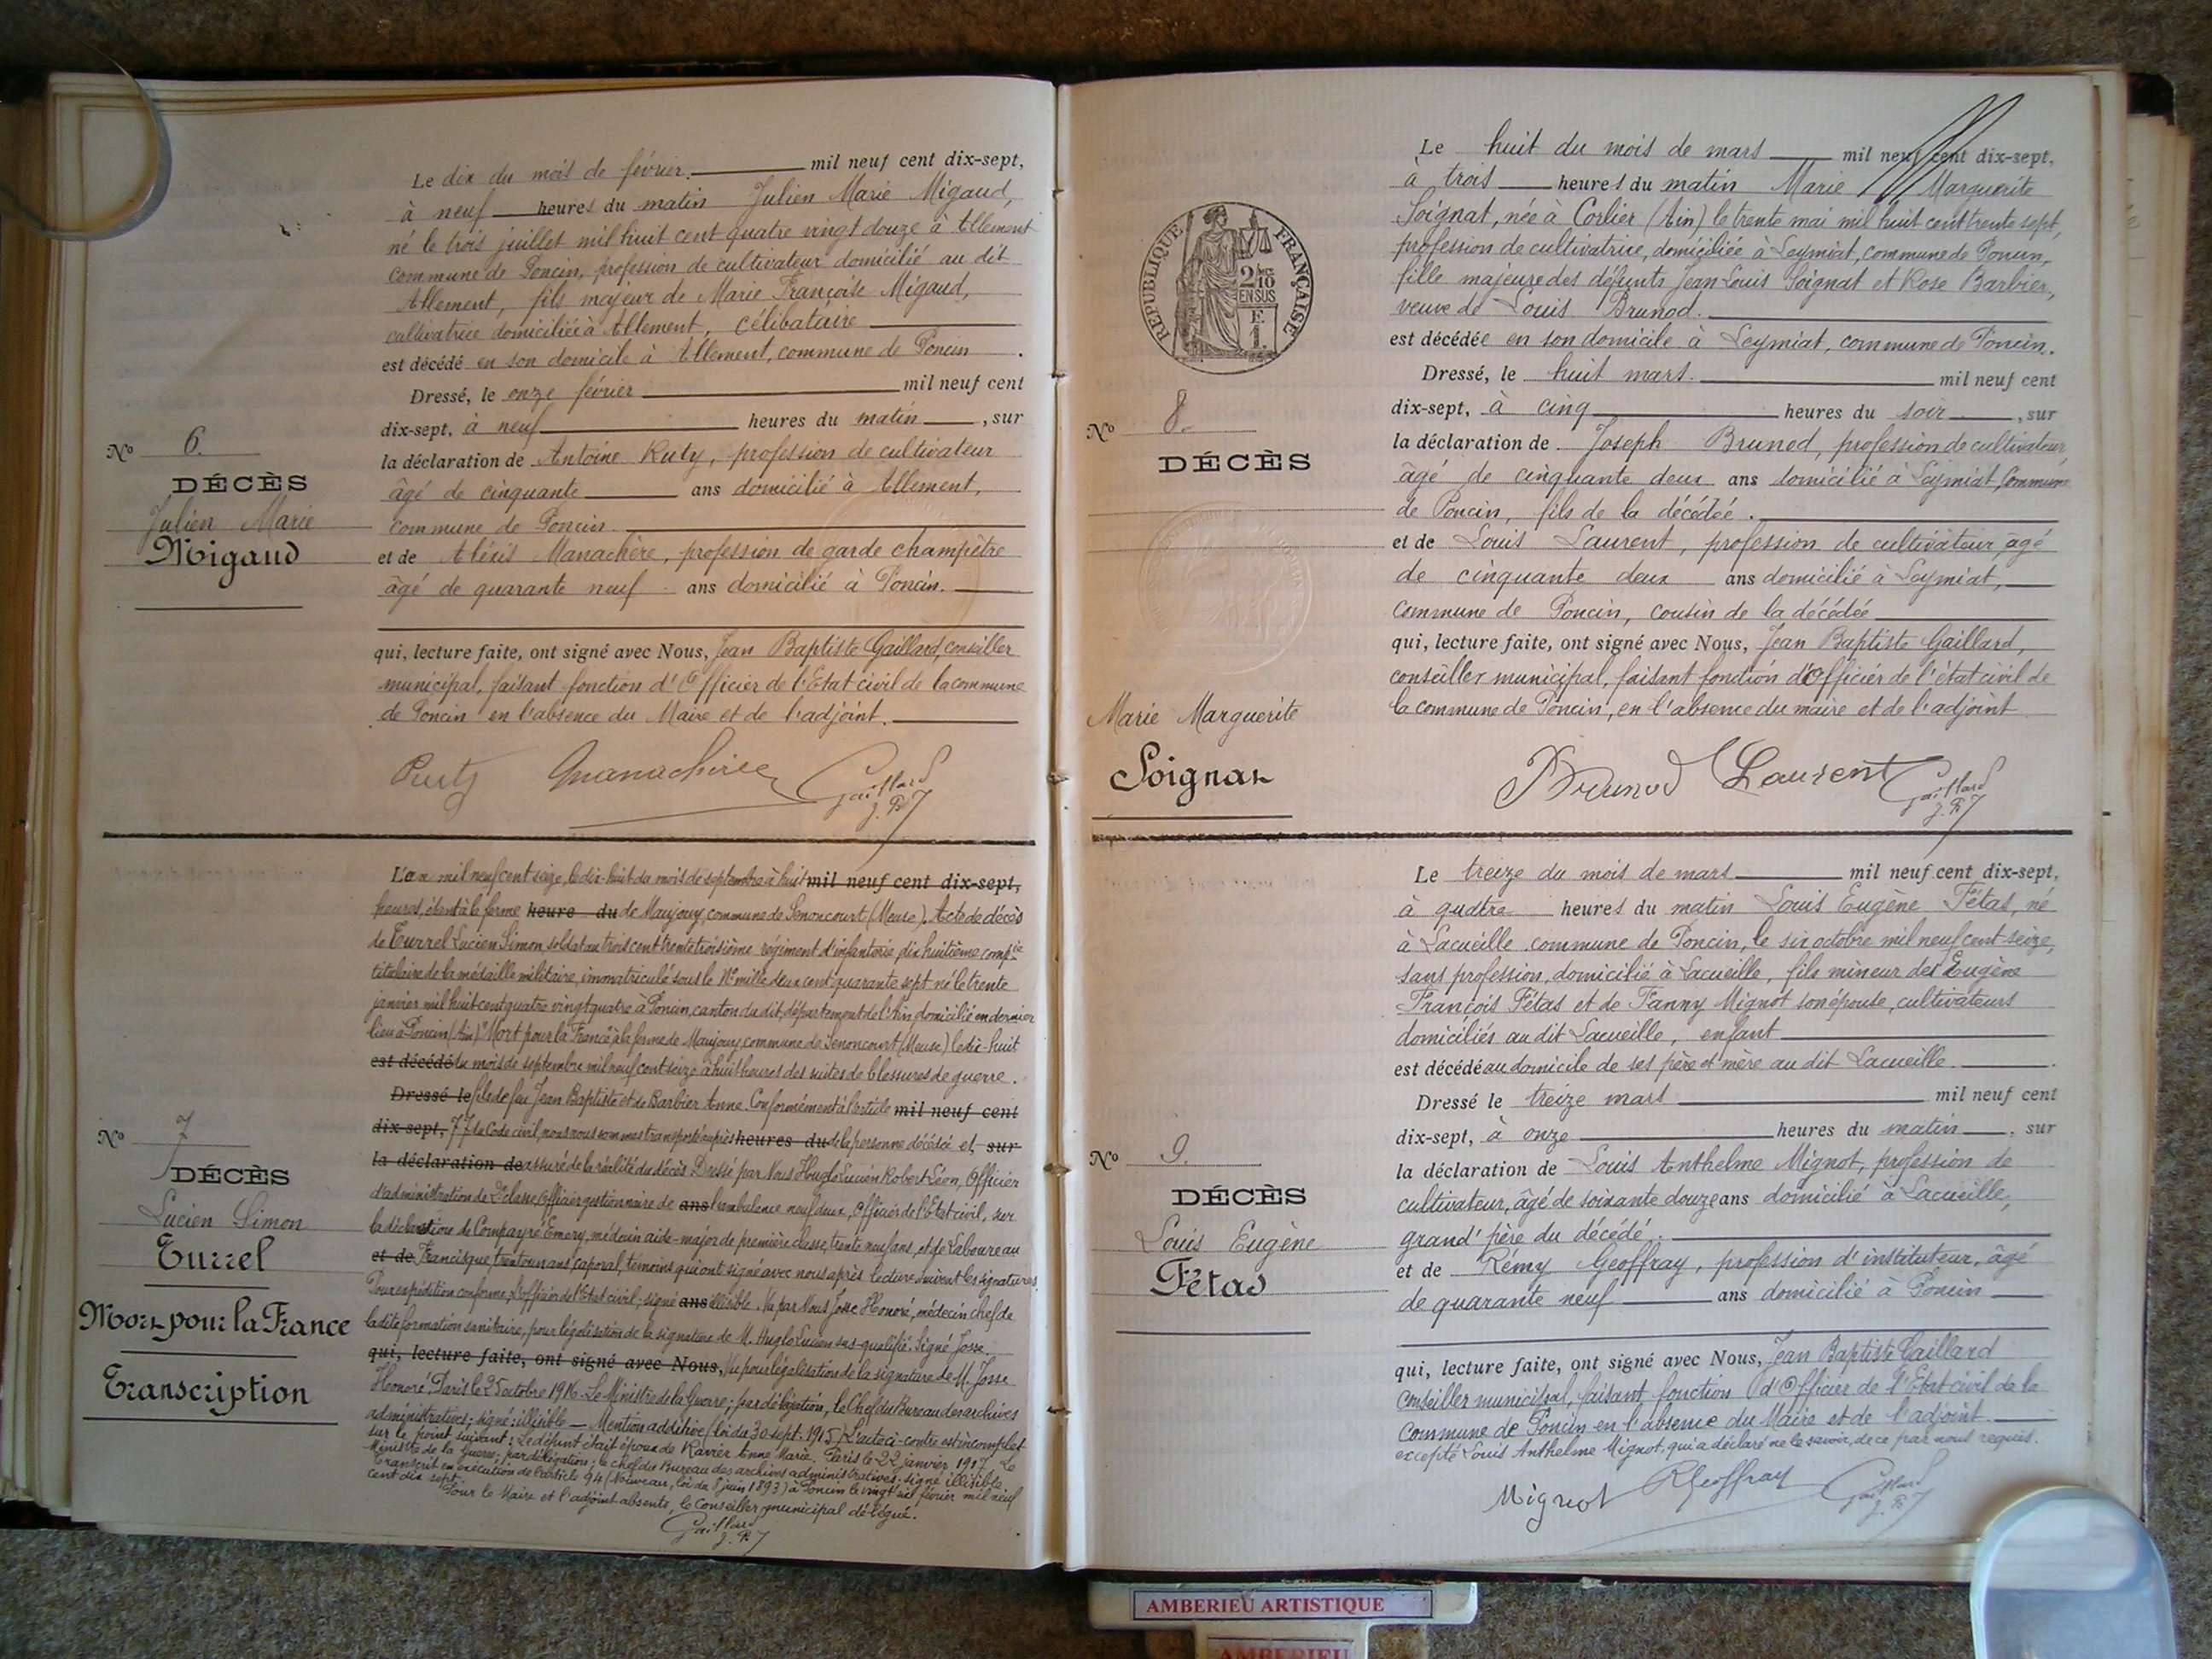 Le dix du mois de février. mil neuf cent dix-sept,
à neuf heures du matin Julien Marie Migaud,
né le trois juillet mil huit cent quatre vingt douze à Allement
commune de Poncin, profession de cultivateur domicilié au dit
Allement, fils majeur de Marie Françoise Migaud,
cultivatrice domiciliée à Allement, célibataire
est décédé en son domicile à Allement, commune de Poncin.
Dressé, le onze février mil neuf cent
dix-sept, à neuf heures du matin, sur
la déclaration de Antoine Ruty, profession de cultivateur
âgé de cinquante ans domicilié à Allement,
commune de Poncin.
et de Alexis Manachère, profession de garde champêtre
âgé de quarante neuf ans domicilié à Poncin.
qui, lecture faite, ont signé avec Nous, Jean Baptiste Gaillard, conseiller
municipal, faisant fonction d'Officier de l'Etat civil de la commune
de Poncin en l'absence du Maire et de l'adjoint.
Ruty Manachère Gaillard
J. B
No 6.
DÉCÈS
Julien Marie
Migaud
L'an mil neuf cent seize, le dix-huit du mois de septembre à huit mil neuf cent dix-sept,
heures, étant à la ferme heure du de Maujouy, commune de Senoncourt (Meuse). Acte de décès
de Turrel Lucien Simon, soldat au trois cent trente troisième régiment d'infanterie, dix huitième compie
titulaire de la médaille militaire, immatriculé sous le No mille deux cent quarante sept né le trente
janvier mil huit cent quatre vingt quatre à Poncin, canton du dit, département de l'Ain, domicilié en dernier
lieu à Poncin (Ain) "Mort pour la France" à la ferme de Maujouy, commune de Senoncourt (Meuse) le dix-huit
est décédé du mois de septembre mil neuf cent seize à huit heures des suites de blessures de guerre.
Dressé le fils de feu Jean Baptiste et de Barbier Anne. Conformément à l'article mil neuf cent
dix-sept, 77 du Code civil, nous nous sommes transporté auprès heures du de la personne décédée et, sur
la déclaration de assuré de la réalité du décès. Dressé par Nous Huglo Lucien Robert Léon, Officier
d'administration de 2e classe, Officier gestionnaire de ans l'ambulance neuf deux, Officier de l'Etat civil, sur
la déclaration de Compayré Emery, médecin aide-major de première classe, trente neuf ans, et de Laboureau
et de Francisque, trente un ans, caporal, témoins qui ont signé avec nous après lecture. Suivent les signatures.
Pour expédition conforme, l'officier de l'Etat civil; signé ans illisible. Vu par Nous Josse Honoré, médecin chef de
la dite formation sanitaire, pour légalisation de la signature de M. Huglo Lucien sus-qualifié. Signé Josse.
qui, lecture faite, ont signé avec Nous, Vu pour légalisation de la signature de M. Josse
Honoré. Paris le 25 octobre 1916. Le Ministre de la Guerre; par délégation, le Chef du Bureau des archives
administratives; signé: illisible — Mention additive (loi du 30 sept. 1915) L'acte ci-contre est incomplet
sur le point suivant: Le défunt était époux de Ravier Anne Marie. Paris le 22 janvier 1917. Le
Ministre de la Guerre; par délégation; le chef du Bureau des archives administratives: signé illisible.
Transcrit en exécution de l'article 94 (Nouveau, loi du 8 juin 1893) à Poncin le vingt six février mil neuf
cent dix sept.
Pour le Maire et l'adjoint absents, le Conseiller municipal délégué.
Gaillard
J. B
No 7
DÉCÈS
Lucien Simon
Turrel
Mort pour la France
Transcription
RÉPUBLIQUE FRANÇAISE
2/10
EN SUS
F.
1.
Le huit du mois de mars mil neuf cent dix-sept,
à trois heures du matin Marie Marguerite
Soignat, née à Corlier (Ain) le trente mai mil huit cent trente sept,
profession de cultivatrice, domiciliée à Leymiat, commune de Poncin,
fille majeure des défunts Jean Louis Soignat et Rose Barbier,
veuve de Louis Brunod.
est décédée en son domicile à Leymiat, commune de Poncin.
Dressé, le huit mars. mil neuf cent
dix-sept, à cinq heures du soir, sur
la déclaration de Joseph Brunod, profession de cultivateur,
âgé de cinquante deux ans domicilié à Leymiat, commune
de Poncin, fils de la décédée.
et de Louis Laurent, profession de cultivateur âgé
de cinquante deux ans domicilié à Leymiat,
commune de Poncin, cousin de la décédée
qui, lecture faite, ont signé avec Nous, Jean Baptiste Gaillard,
conseiller municipal, faisant fonction d'Officier de l'état civil de
la commune de Poncin, en l'absence du maire et de l'adjoint
Brunod Laurent Gaillard
J. B
No 8.
DÉCÈS
Marie Marguerite
Soignat
Le treize du mois de mars mil neuf cent dix-sept,
à quatre heures du matin Louis Eugène Fétas, né
à Lacueille commune de Poncin, le six octobre mil neuf cent seize,
sans profession, domicilié à Lacueille, fils mineur des Eugène
François Fétas et de Fanny Mignot son épouse, cultivateurs
domiciliés au dit Lacueille, enfant
est décédé au domicile de ses père et mère au dit Lacueille.
Dressé le treize mars mil neuf cent
dix-sept, à onze heures du matin, sur
la déclaration de Louis Anthelme Mignot, profession de
cultivateur, âgé de soixante douze ans domicilié à Lacueille,
grand' père du décédé.
et de Rémy Geoffray, profession d'instituteur, âgé
de quarante neuf ans domicilié à Poncin
qui, lecture faite, ont signé avec Nous, Jean Baptiste Gaillard
Conseiller municipal, faisant fonction d'Officier de l'Etat civil de la
Commune de Poncin en l'absence du Maire et de l'adjoint.
excepté Louis Anthelme Mignot, qui a déclaré ne le savoir, de ce par nous requis.
Mignot RGeoffray Gaillard
J. B
No 9.
DÉCÈS
Louis Eugène
Fétas
AMBERIEU ARTISTIQUE
AMBERIEU